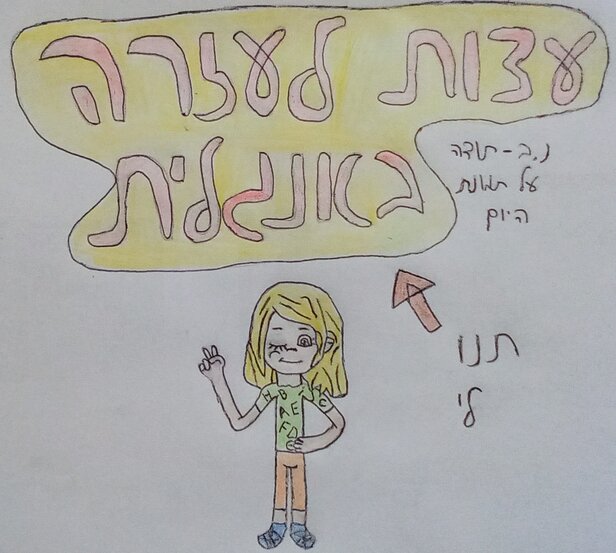 עצות לעזרה
באנגלית
נ.ב - תודה
על תמונת
היום
תנו
לי